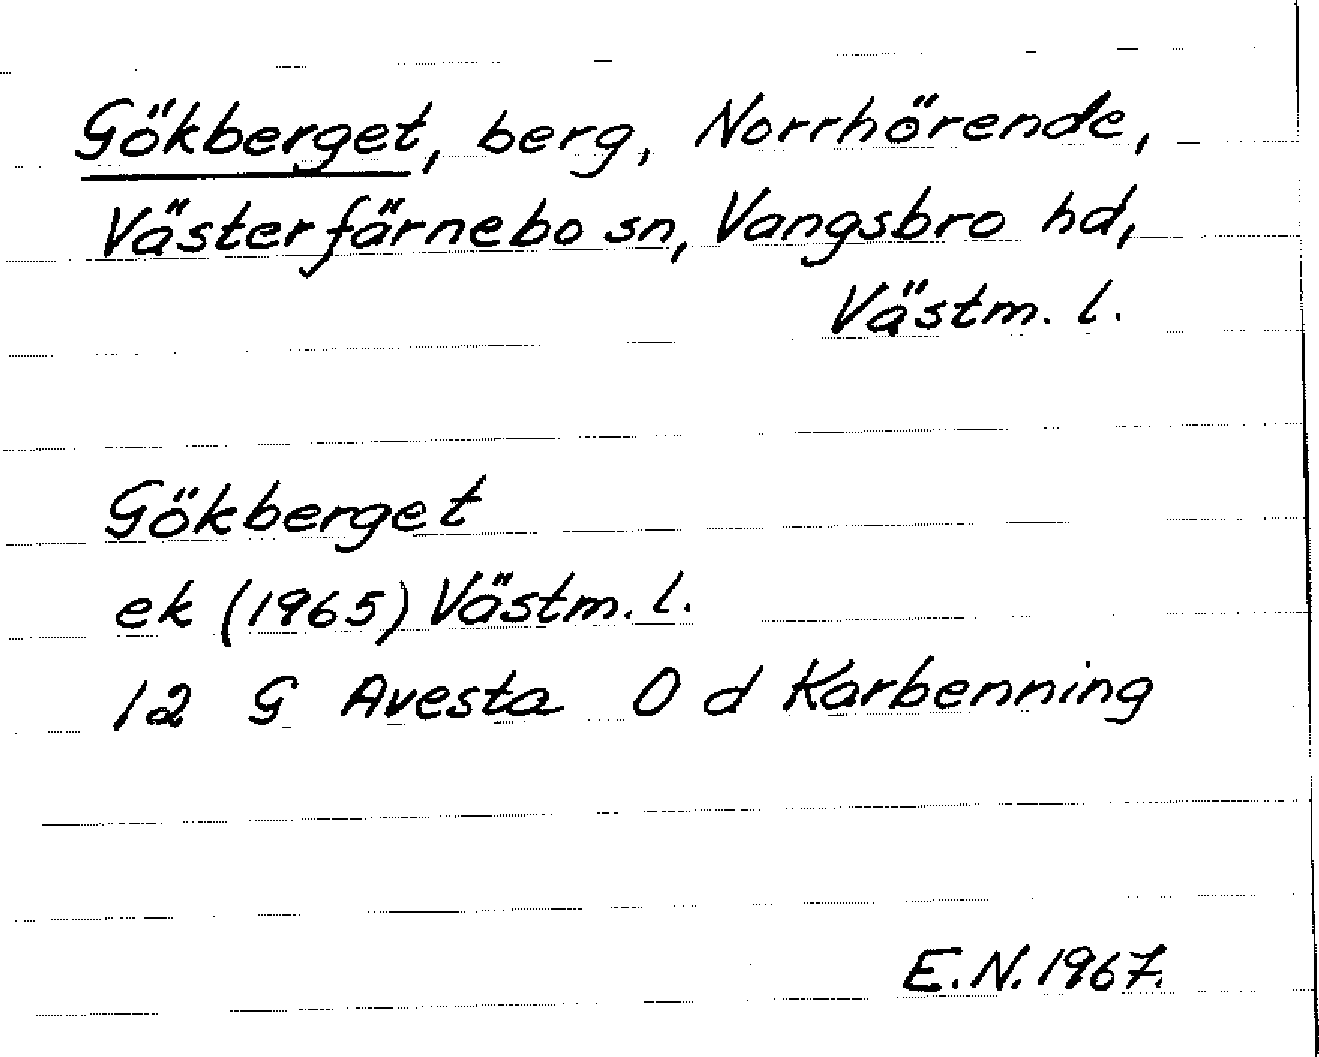 Gökberget, berg, Norrhörende,
Västerfärnebo sn, Vangsbro hd,
Västm. l.
Gökberget
ek (1965) Västm. l.
12 G Avesta O d Karbenning
E.N. 1967.